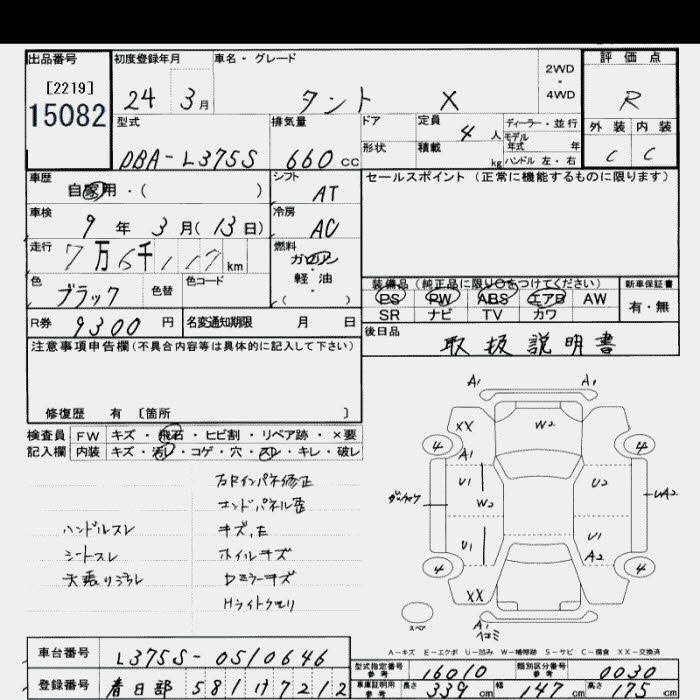 出品番号 初度登録年月 車名・グレード 2WD・4WD 評価点
[2219]
15082
24 3月 タント X R
型式 排気量 ドア 定員 4人 ディーラー・並行 外装 内装
モデル年式 年
DBA-L375S 660cc 形状 積載 kg ハンドル 左・右 C C
車歴 シフト セールスポイント (正常に機能するものに限ります)
自家用・( ) AT
車検 9年 3月(13日) 冷房 AC
走行 7万6千117km 燃料 ガソリン
軽油
( )
色 ブラック 色替 色コード
装備品(純正品に限り○をつけてください) 新車保証書
PS PW ABS エアB AW 有・無
SR ナビ TV カワ
R券 9300円 名変通知期限 月 日 後日品
取扱説明書
注意事項申告欄(不具合内容等は具体的に記入して下さい)
修復歴 有〔箇所 〕
検査員 FW キズ・飛石・ヒビ割・リペア跡・×要
記入欄 内装 キズ・汚レ・コゲ・穴・スレ・キレ・破レ
右Rインパネ修正
エンドパネル歪
ハンドルスレ キズ,E
シートスレ ホイルキズ
天張りヨゴレ Dミラーキズ
Hライトクモリ
A1 A1
XX W2
4 4
A1
U1 U2
W2 UA2
U1 U
A2
4 4
XX
スペア A1
ヘコミ
A-キズ E-エクボ U-凹み W-補修跡 S-サビ C-腐食 XX-交換済
車台番号 L375S-0510646
型式指定番号 参考 16010 類別区分番号 参考 0030
登録番号 春日部 581 け 7212
車庫証明用 参考 長さ 339cm 幅 147cm 高さ 175cm